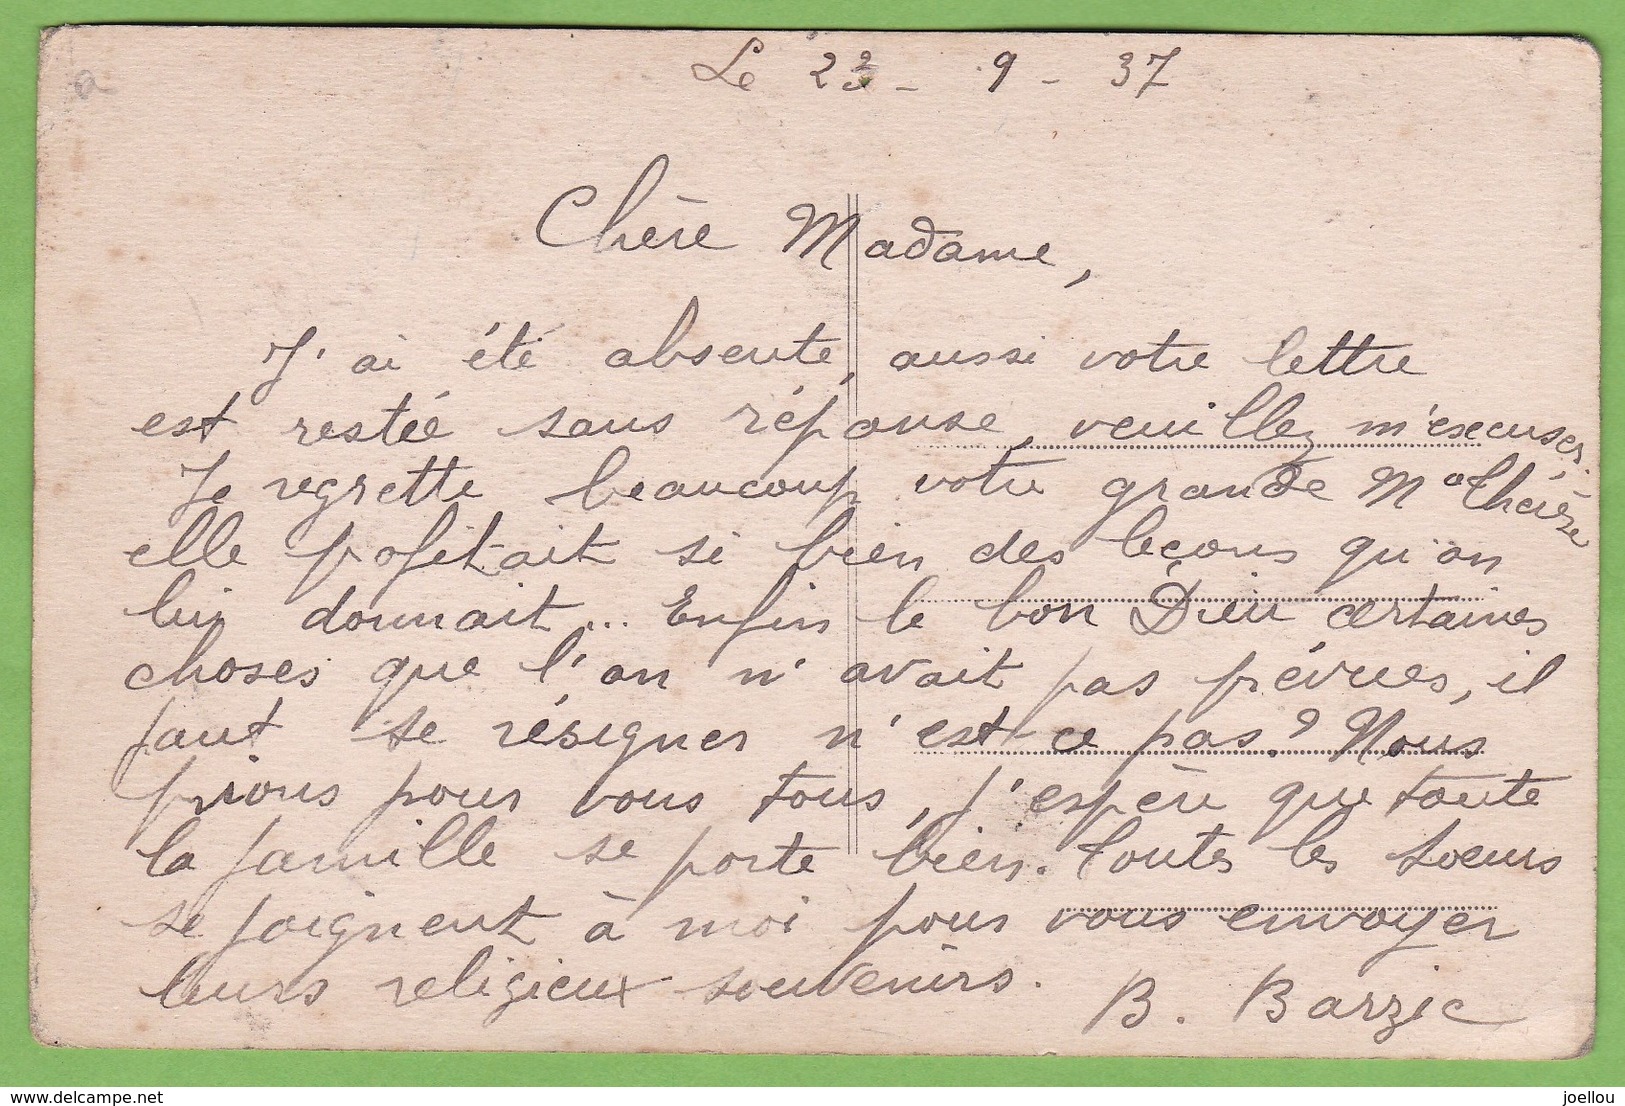 Le 22 - 9 - 37
Chère Madame,
J'ai été absente, aussi votre lettre
est restée sans réponse, veuillez m'excuser.
Je regrette beaucoup votre grande Mie Thérèse
elle profitait si bien des leçons qu'on
lui donnait... Enfin le bon Dieu certaines
choses que l'on n'avait pas prévues, il
faut se résigner n'est-ce pas? Nous
prions pour vous tous, j'espère que toute
la famille se porte bien. Toutes les Soeurs
se joignent à moi pour vous envoyer
leurs religieux souvenirs.
B. Barzic
delcampe.net
joellou